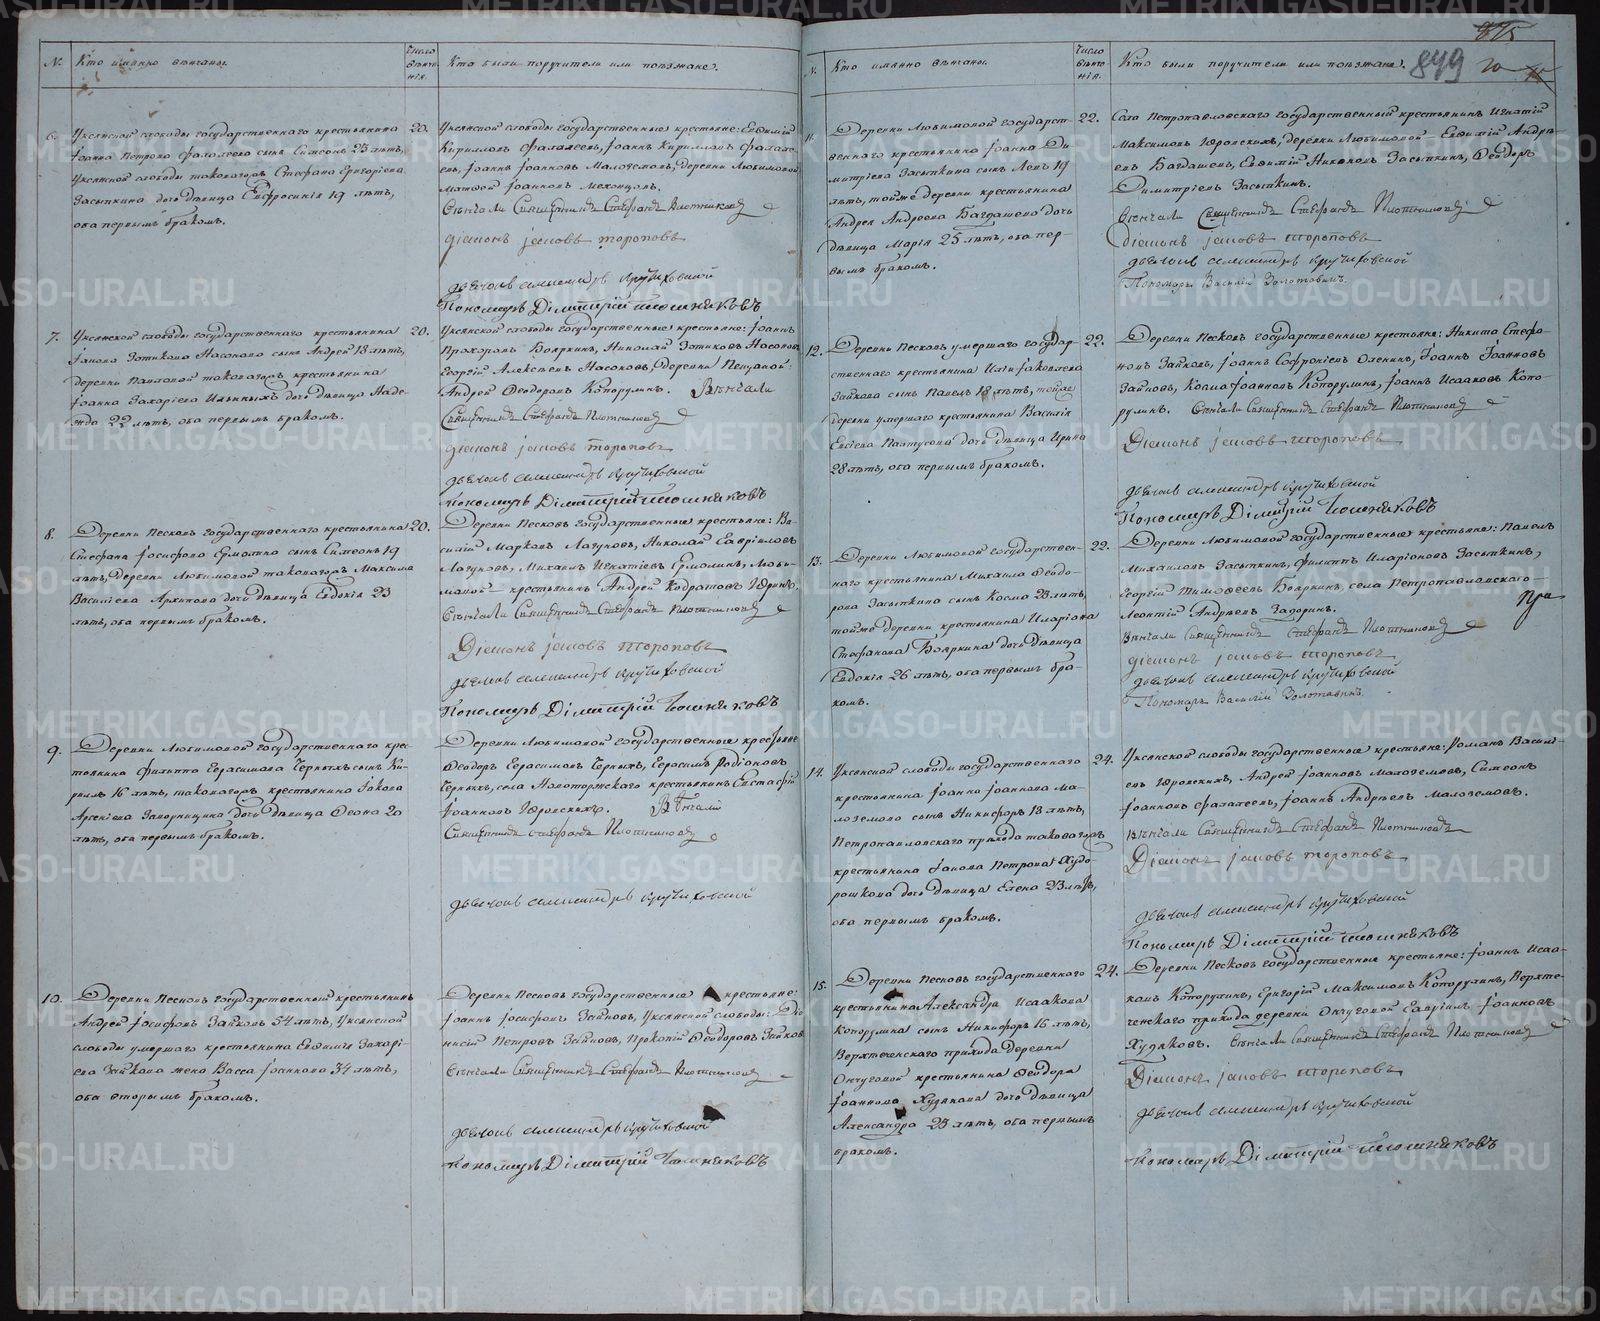 №
Кто именно вѣнчаны.
Число вѣнчанія.
Кто были поручители или поѣзжане.
6.
Уксянской слободы государственнаго крестьянина
Іоанна Петрова Фалалеева сынъ Симеонъ 23 лѣтъ,
Уксянской слободы таковагожъ Стефана Григоріева
Засыпкина дочь дѣвица Евфросинія 19 лѣтъ,
оба первымъ бракомъ.
20.
Уксянской слободы государственные крестьяне: Евфимій
Кирилловъ Фалалеевъ, Іоаннъ Кирилловъ Фалале-
евъ, Іоаннъ Іоанновъ Малоземовъ, деревни Любимовой
Матѳей Іоанновъ Мехонцовъ.
Вѣнчали Священникъ Стефанъ Плотниковъ
Діаконъ Іаковъ Тороповъ
дьячокъ Александръ Кручиховской
Пономарь Димитрій
7.
Уксянской слободы государственнаго крестьянина
Іакова Зотикова Насонова сынъ Андрей 18 лѣтъ,
деревни Павловой таковагожъ крестьянина
Іоанна Захаріева Ильиныхъ дочь дѣвица Наде-
жда 22 лѣтъ, оба первымъ бракомъ.
20.
Уксянской слободы государственные крестьяне: Іоаннъ
Прохоровъ Бояркинъ, Николай Зотиковъ Насоновъ
Георгій Алексѣевъ Насоновъ, деревни
Андрей Ѳеодоровъ Копоруминъ. Вѣнчали
Священникъ Стефанъ Плотниковъ
Діаконъ Іаковъ Тороповъ
дьячокъ Александръ Кручиховской
Пономарь Димитрій
8.
Деревни Песковъ государственнаго крестьянина
Стефана Іосифова Ермолина сынъ Симеонъ 19
лѣтъ, деревни Любимовой таковагожъ Максима
Василіева Архипова дочь дѣвица Евдокія 23
лѣтъ, оба первымъ бракомъ.
20.
Деревни Песковъ государственные крестьяне: Ва-
силій Марковъ Лагуновъ, Николай Гавріиловъ
Лагуновъ, Михаилъ Игнатіевъ Ермолинъ, Люби-
мовой крестьянинъ Андрей Кодратовъ
Вѣнчали Священникъ Стефанъ Плотниковъ
Діаконъ Іаковъ Тороповъ
дьячокъ Александръ Кручиховской
Пономарь Димитрій
9.
Деревни Любимовой государственнаго крес-
тьянина Филиппа Герасимова Черныхъ сынъ Ки-
риллъ 16 лѣтъ, таковагожъ крестьянина Іакова
Арсеніева дочь дѣвица Ѳеона 20
лѣтъ, оба первымъ бракомъ.
Деревни Любимовой государственные крестьяне
Ѳеодоръ Герасимовъ Черныхъ, Герасимъ Родіоновъ
Черныхъ, села Новоторжскаго крестьянинъ Евстафій
Іоанновъ Юровскихъ. Вѣнчали
Священникъ Стефанъ Плотниковъ
дьячокъ Александръ Кручиховской
10.
Деревни Песковъ государственный крестьянинъ
Андрей Іосифовъ Зайковъ 54 лѣтъ, Уксянской
слободы умершаго крестьянина Евфимія Захарі-
ева Зайкова жена Васса Іоаннова 34 лѣтъ,
оба вторымъ бракомъ.
Деревни Песковъ государственные крестьяне
Іоаннъ Іосифовъ Зайковъ, Уксянской слободы: Діо-
нисій Петровъ Зайковъ, Прокопій Ѳеодоровъ Зайковъ
Вѣнчали Священникъ Стефанъ Плотниковъ
дьячокъ Александръ Кручиховской
Пономарь Димитрій
849
№
Кто именно вѣнчаны.
Число вѣнчанія.
Кто были поручители или поѣзжане.
11.
Деревни Любимовой государст-
веннаго крестьянина Іоанна Ди-
митріева Засыпкина сынъ Левъ 19
лѣтъ, тойже деревни крестьянина
Андрея Андреева Багдашева дочь
дѣвица Марія 25 лѣтъ, оба пер-
вымъ бракомъ.
22.
Села Петропавловскаго государственный крестьянинъ Игнатій
Максимовъ Юровскихъ, деревни Любимовой Евфимій Андре-
евъ Багдашевъ, Евфимій Засыпкинъ, Ѳеодоръ
Димитріевъ Засыпкинъ.
Вѣнчали Священникъ Стефанъ Плотниковъ
Діаконъ Іаковъ Тороповъ
дьячокъ Александръ Кручиховской
Пономарь Василій Золотавинъ.
12.
Деревни Песковъ умершаго государ-
ственнаго крестьянина Иліи Іаковлева
Зайкова сынъ Павелъ 18 лѣтъ, тойже
деревни умершаго крестьянина Василія
Евсѣева Палтусова дочь дѣвица Ирина
28 лѣтъ, оба первымъ бракомъ.
22.
Деревни Песковъ государственные крестьяне: Никита Стефа-
новъ Зайковъ, Іоаннъ Софроніевъ Оленинъ, Іоаннъ Іоанновъ
Зайковъ, Косма Іоанновъ Копоруминъ, Іоаннъ Исааковъ Копо-
руминъ. Вѣнчали Священникъ Стефанъ Плотниковъ
Діаконъ Іаковъ Тороповъ
дьячокъ Александръ Кручиховской
Пономарь Димитрій
13.
Деревни Любимовой государствен-
наго крестьянина Михаила Ѳеодо-
рова Засыпкина сынъ Косма 28 лѣтъ,
тойже деревни крестьянина Иларіона
Стефанова Бояркина дочь дѣвица
Евдокія 26 лѣтъ, оба первымъ бра-
комъ.
22.
Деревни Любимовой государственные крестьяне: Павелъ
Михаиловъ Засыпкинъ, Филиппъ Иларіоновъ Засыпкинъ,
Георгій Тимоѳеевъ Бояркинъ, села Петропавловскаго
Леонтій Андреевъ Задоринъ.
Вѣнчали Священникъ Стефанъ Плотниковъ
Діаконъ Іаковъ Тороповъ
дьячокъ Александръ Кручиховской
Пономарь Василій Золотавинъ.
14.
Уксянской слободы государственнаго
крестьянина Іоанна Іоаннова Ма-
лоземова сынъ Никифоръ 18 лѣтъ,
Петропавловскаго прихода таковагожъ
крестьянина Іакова Петрова Худо-
рошкова дочь дѣвица Елена 23 лѣтъ,
оба первымъ бракомъ.
24.
Уксянской слободы государственные крестьяне: Романъ Василі-
евъ Юровскихъ, Андрей Іоанновъ Малоземовъ, Симеонъ
Іоанновъ Фалалеевъ, Іоаннъ Андреевъ Малоземовъ.
Вѣнчали Священникъ Стефанъ Плотниковъ
Діаконъ Іаковъ Тороповъ
дьячокъ Александръ Кручиховской
Пономарь Димитрій
15.
Деревни Песковъ государственнаго
крестьянина Александра Исаакова
Копорумина сынъ Никифоръ 16 лѣтъ,
Верхтеченскаго прихода деревни
Ончуговой крестьянина Ѳеодора
Іоаннова Худякова дочь дѣвица
Александра 23 лѣтъ, оба первымъ
бракомъ.
24.
Деревни Песковъ государственные крестьяне: Іоаннъ Исаа-
ковъ Копоруминъ, Григорій Максимовъ Копоруминъ, Верхте-
ченскаго прихода деревни Ончуговой Гавріилъ Іоанновъ
Худяковъ. Вѣнчали Священникъ Стефанъ Плотниковъ
Діаконъ Іаковъ Тороповъ
дьячокъ Александръ Кручиховской
Пономарь Димитрій
METRIKI.GASO-URAL.RU